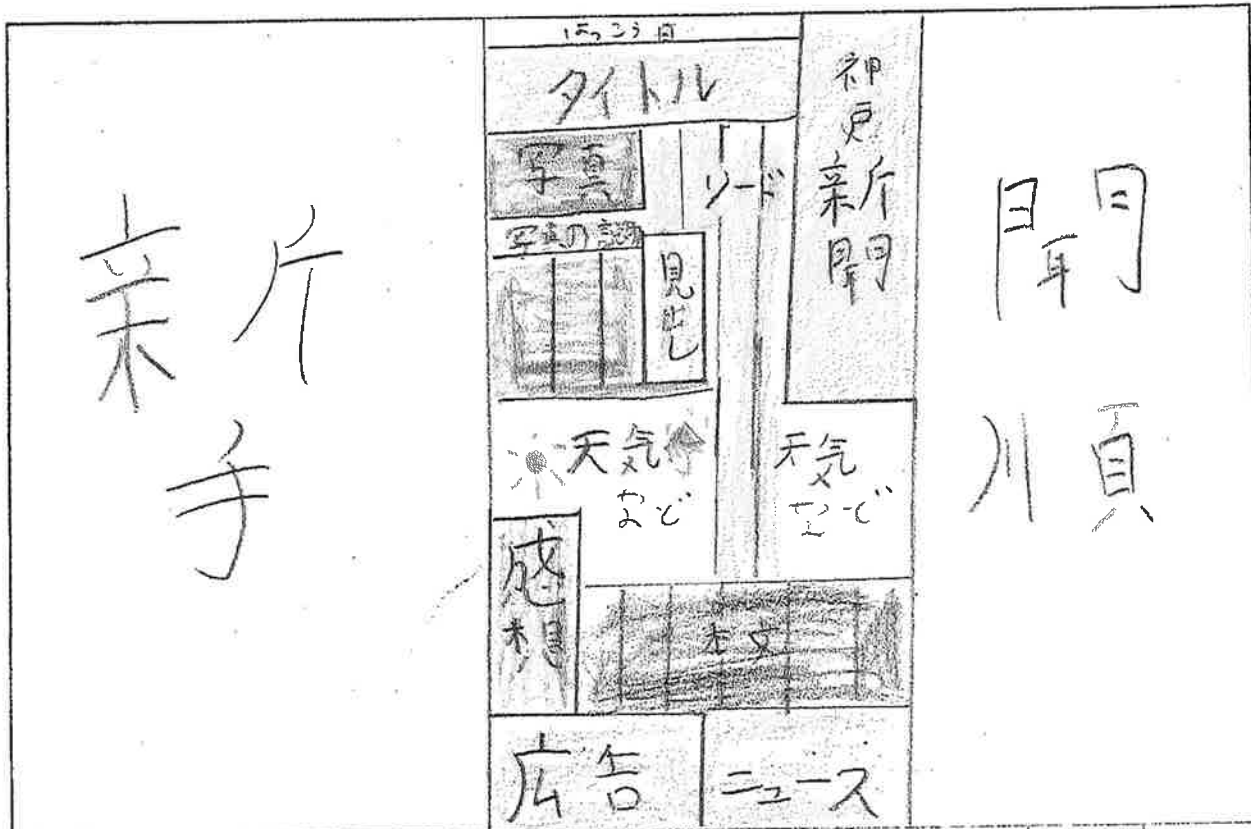 はっこう日
タイトル
神戸新聞
写真
リード
写真の説明
見出し
新
聞
手
順
天気
など
天気
など
感想
本文
広告
ニュース